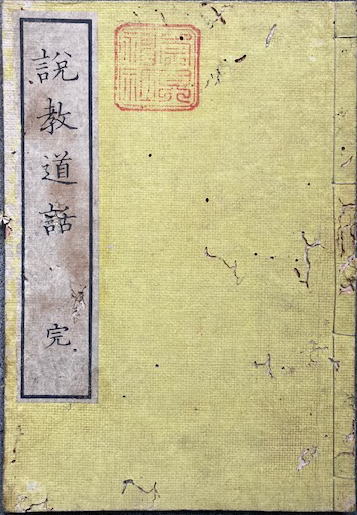 説教道話 完